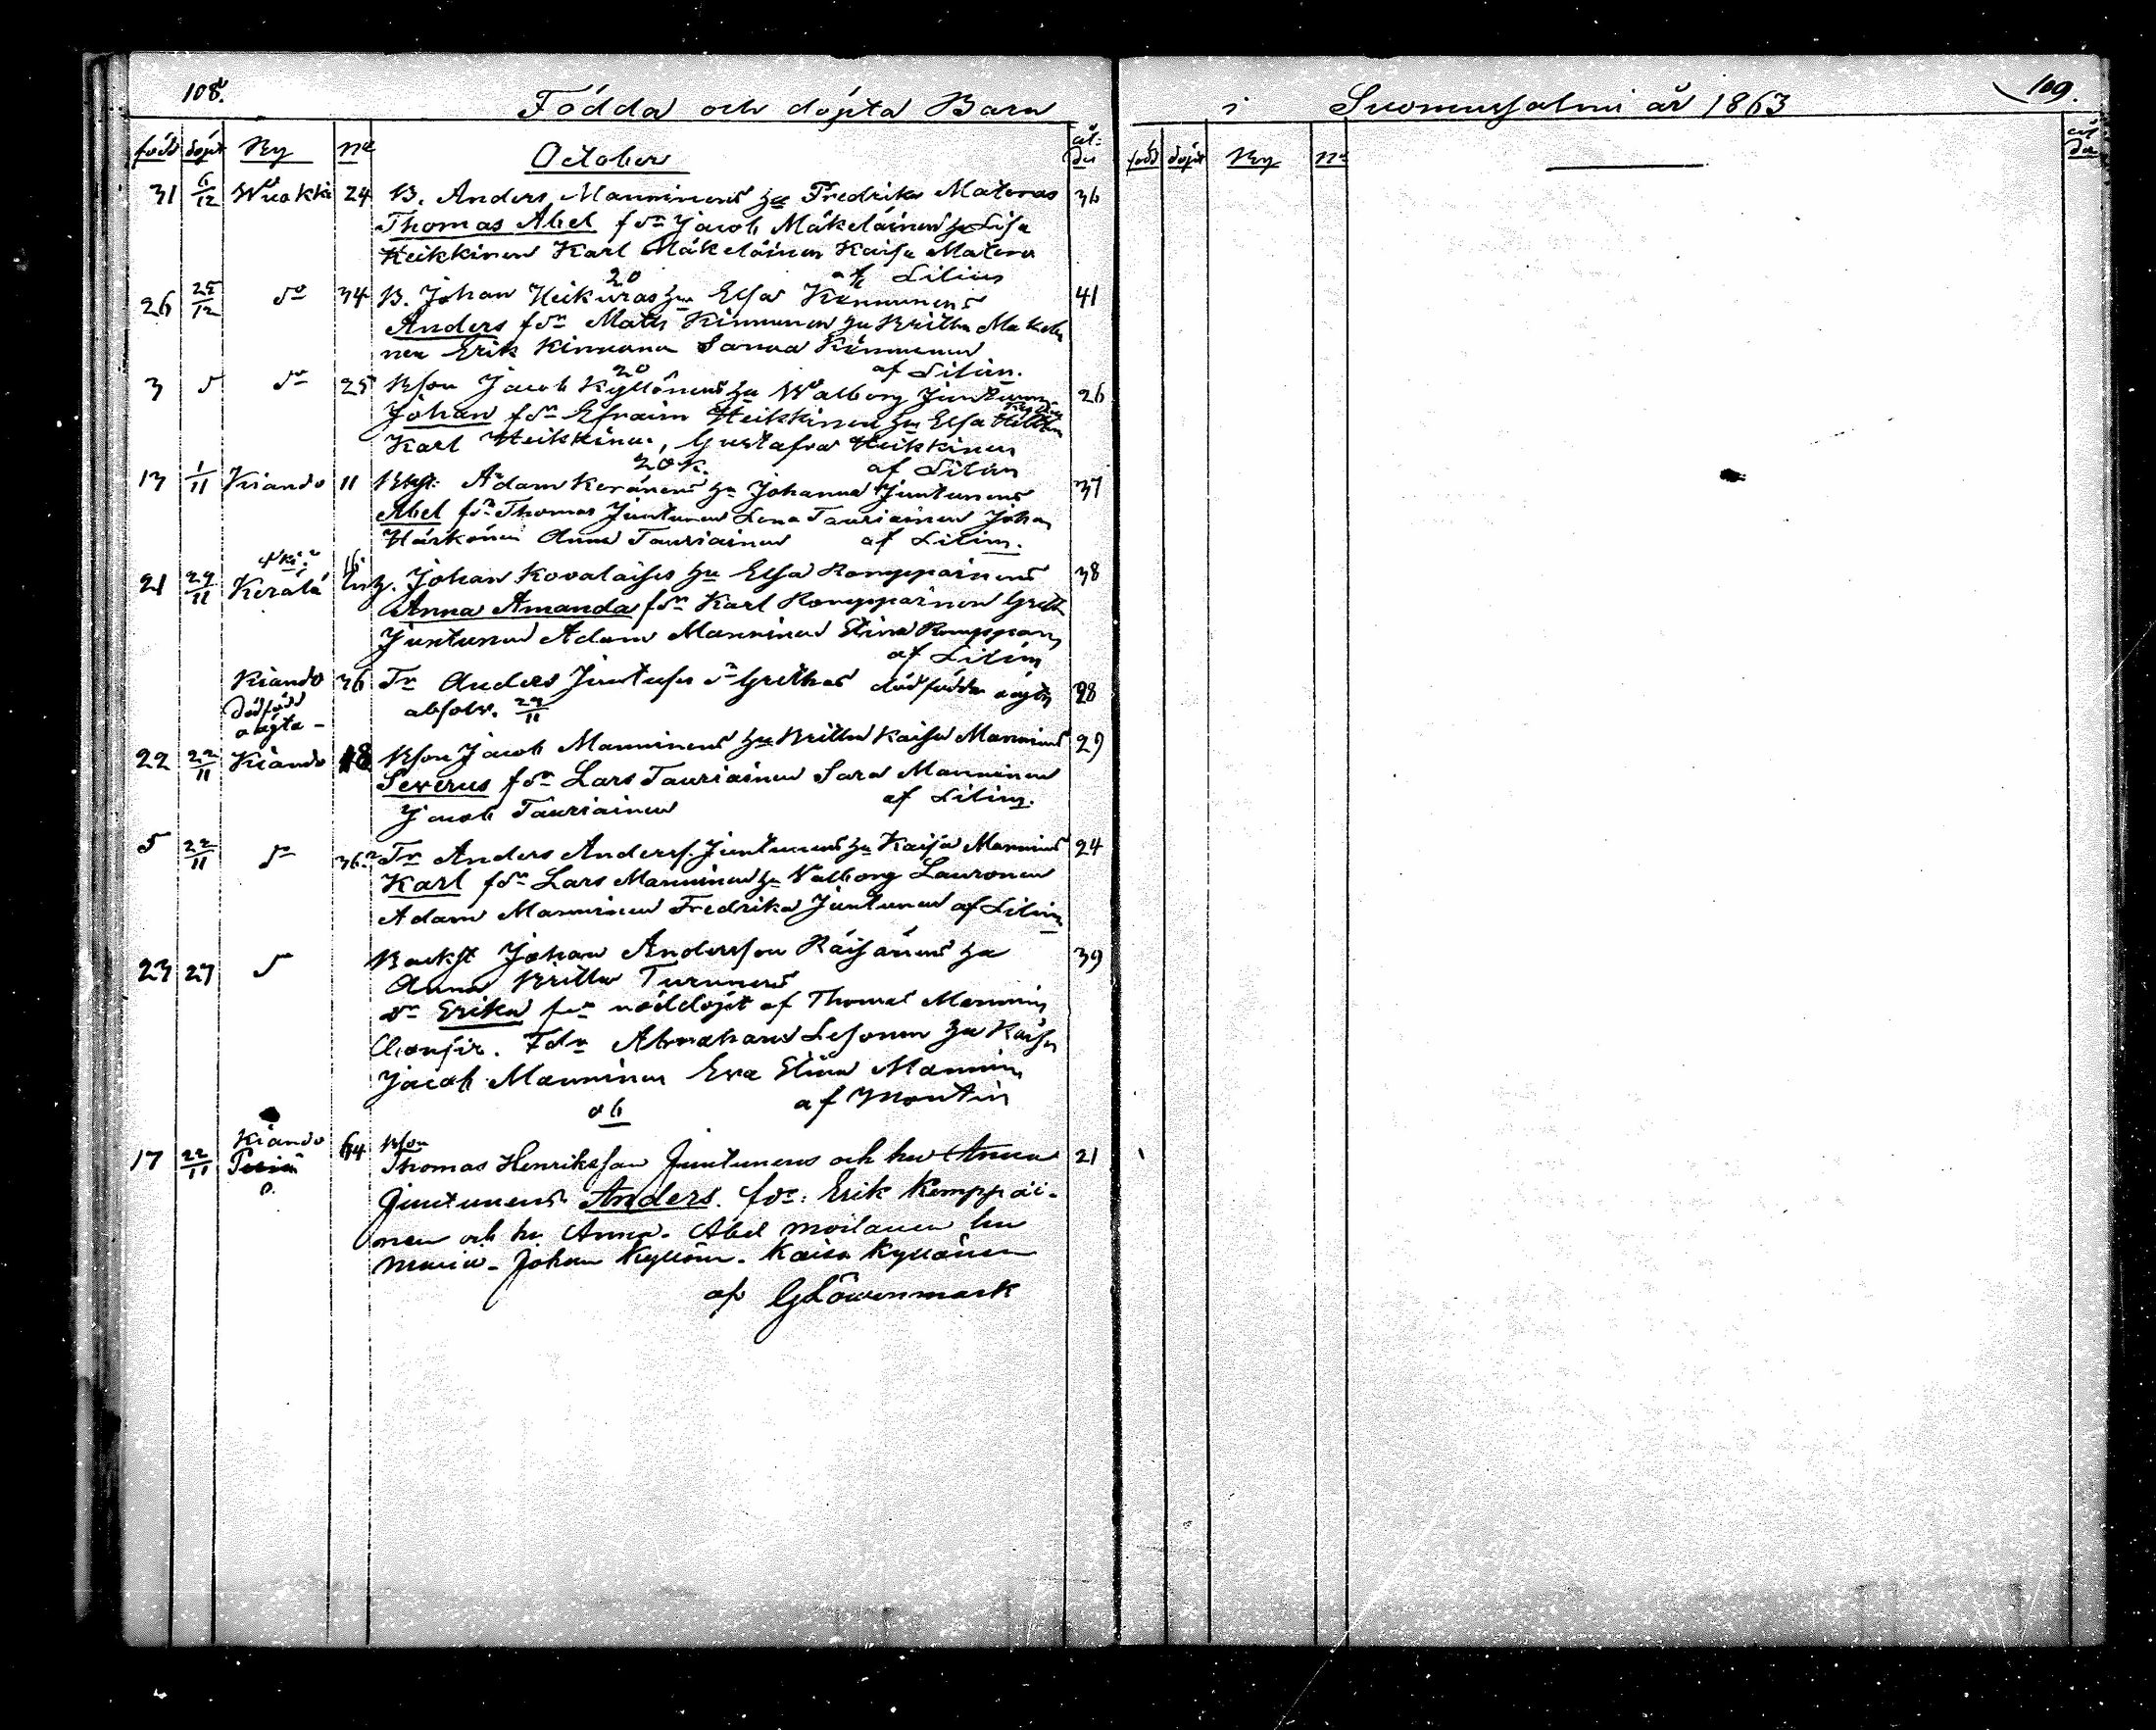 108.
Födda och döpta Barn
född döpt By No October ål- der
31 6/12 Wuokki 24 B. Anders Manninens hu Fredrika Materas 36
Thomas Abel fdr Jacob Mäkeläinen hu Lisa
Heikkinen Karl Mäkeläinen Kaisa Matera
20 af Lilius
26 25/12 do 34 B. Johan Heikuras hu Elsa Kinnunens 41
Anders fdr Matts Kinnunen hu Britha Makela
nen Erik Kinnunen Sanna Kinnunen
20 af Lilius.
3 do 25 Bson Jacob Kyllönens hu Walborg Juntunens 26
Johan fdr Efraim Heikkinen hu Elsa
Karl Heikkinen, Gustafva Heikkinen
20 k. af Lilius
13 1/11 Kiando 11 Bkst. Adam Keränens hu Johanna Juntunens 37
Abel fdr Thomas Juntunen Lena Tauriainen Johan
Härkönen Anna Tauriainen af Lilius.
21 29/11 Kerälä 16. Inh. Johan Kovalaises hu Elsa Romppainens 38
Anna Amanda fdr Karl Romppainen Greth
Juntunen Adam Manninen Stina Romppain
af Lilius
Kiando 36 Tr Anders Juntuses dr Grethas dödfödda oägta 28
Dödfödd oägta - absolv. 29/11
22 22/11 Kiando 18 Bson Jacob Manninens hu Britha Kaisa Mannins 29
Severus fdr Lars Tauriainen Sara Manninen
Jacob Tauriainen af Lilius.
5 22/11 do 36.2 Tr Anders Anders. Juntunens hu Kaisa Mannins 24
Karl fdr Lars Manninen hu Valborg Lauronen
Adam Manninen Fredrika Juntunen af Lilius
23 27 Backst Johan Andersson Räisänens hu 39
Anna Britha Turunens
dr Erika fdr nöddöpt af Thomas Mannin
Confir. Fdr Abraham Lesonen hu Kaisa
Jacob Manninen Eva Stina Mannin
ob af Montin
17 22/11 Kiando 64 Bson
Thomas Henriksson Juntunens och hu Anna 21
Juntunens Anders. fdr: Erik Kemppai-
nen och hu Anna. Abel Moilanen hu
Maria - Johan Kyllönen. Kaisa Kyllönen
af G Löwenmark
109.
i Suomusjalmi år 1863
född döpt By No ål der